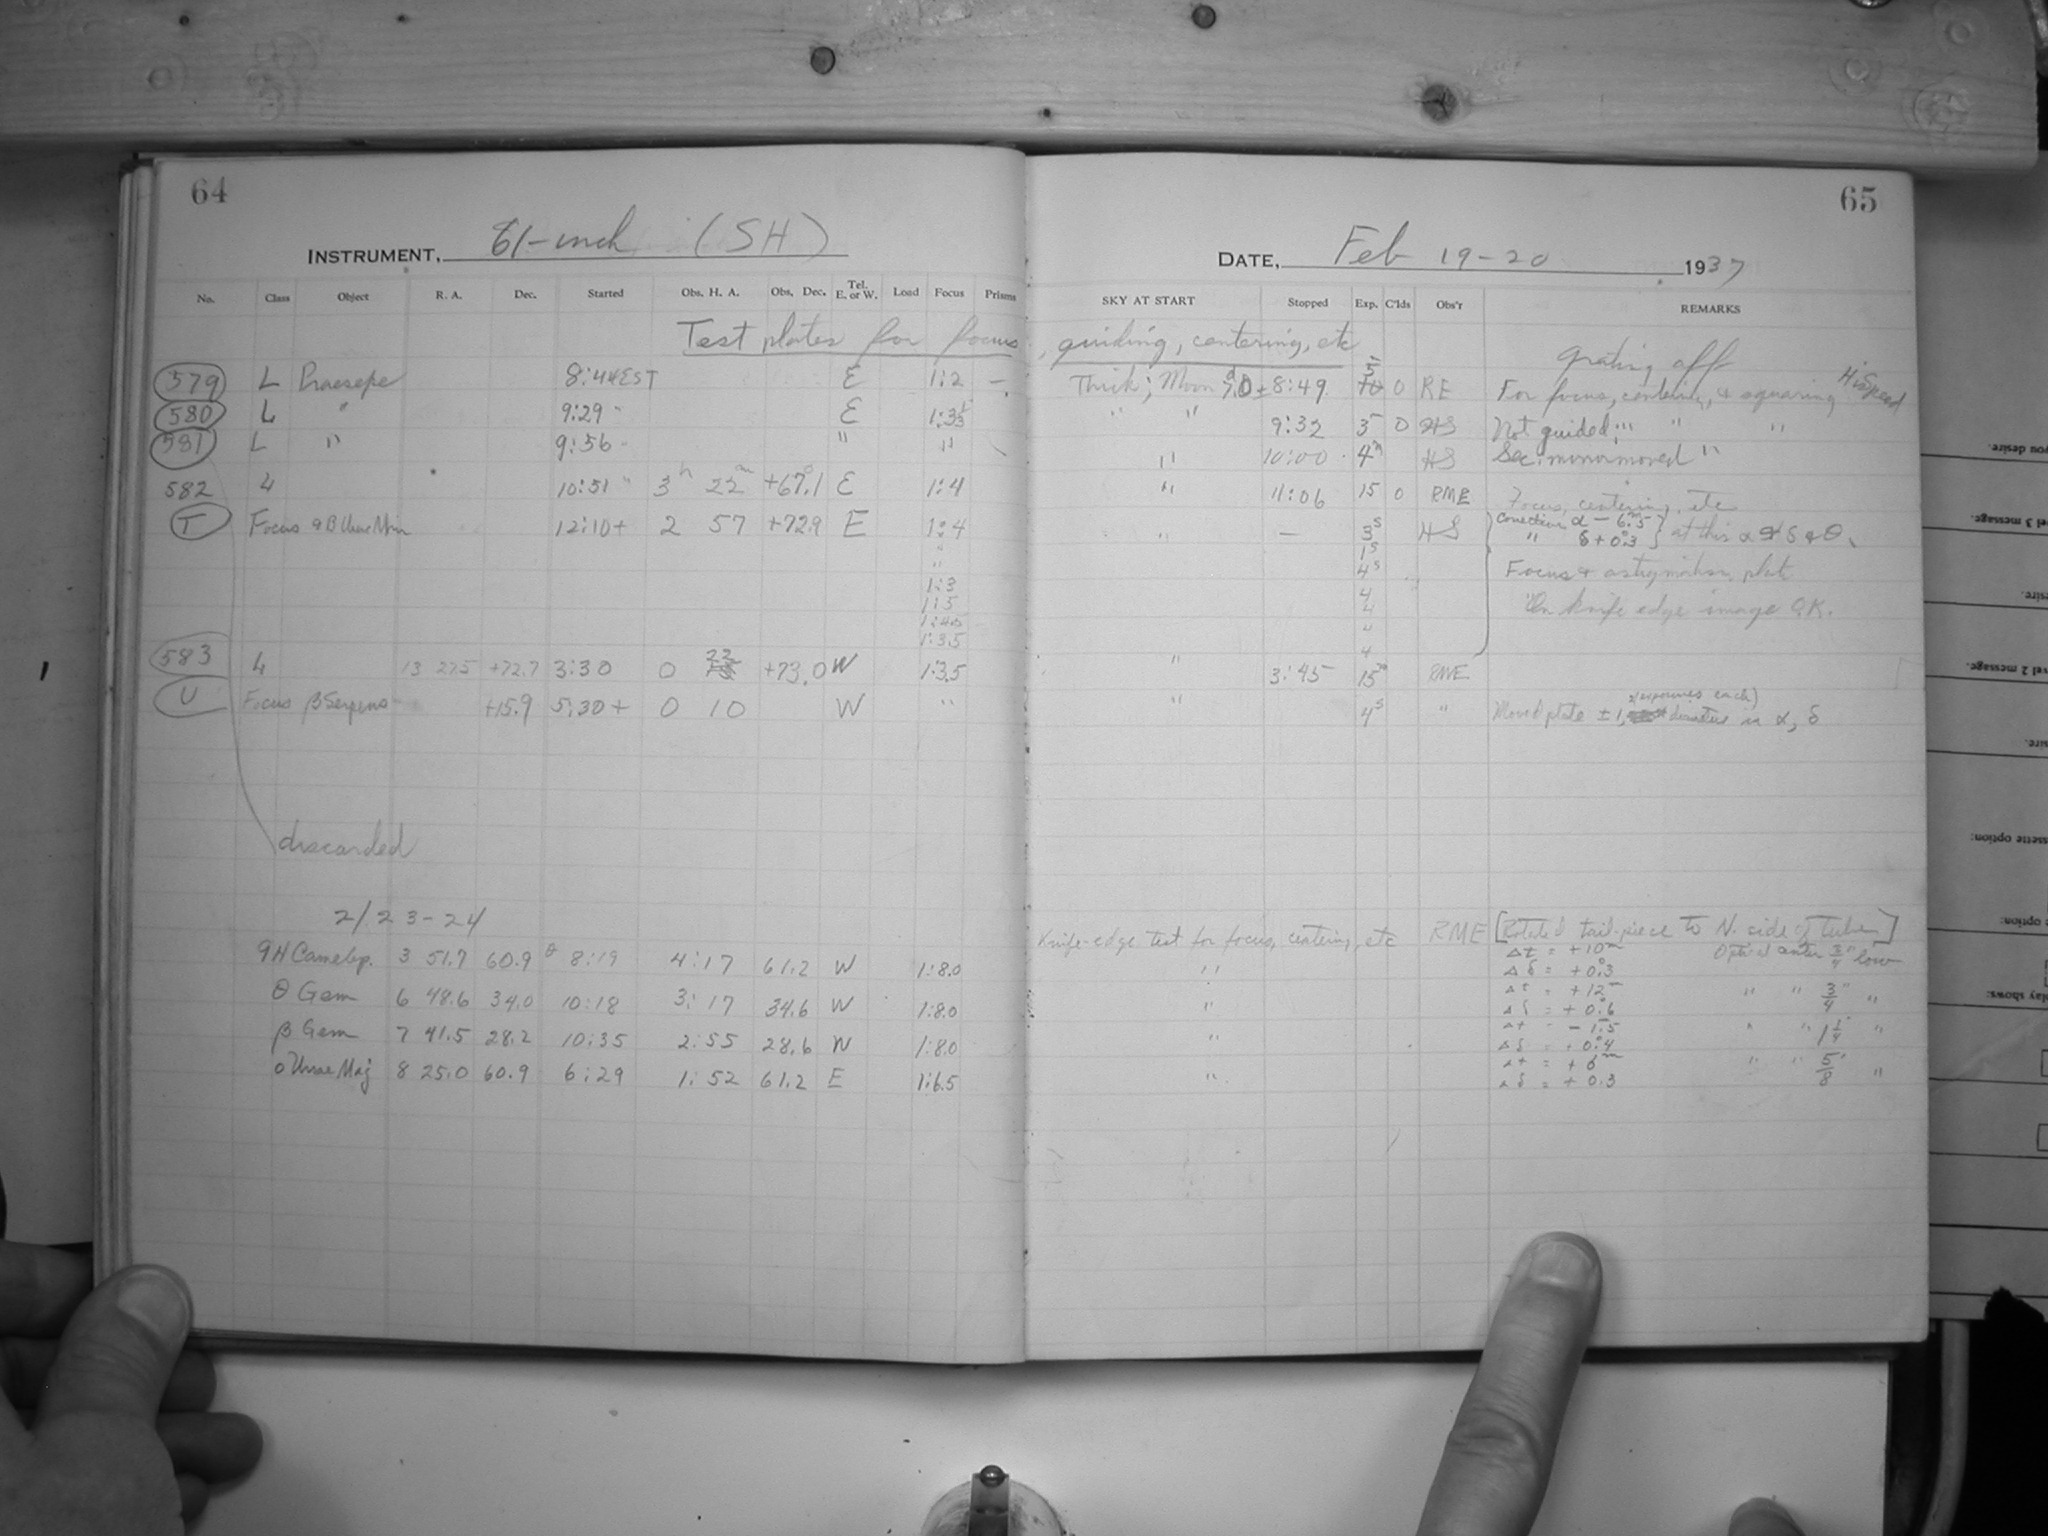 64
65
INSTRUMENT, 61-inch (SH)
DATE, Feb 19-20 1937
No. Class Object R. A. Dec. Started Obs. H. A. Obs. Dec. Tel. E. or W. Load Focus Prisms SKY AT START Stopped Exp. C'lds Obs'r REMARKS
Test plates for focus, guiding, centering, etc
grating off
579 L Praesepe 8:44 EST E 1:2 — Thick; Moon 8:49 5 10 0 RE For focus, centering, & squaring HiSpeed
580 L " 9:29 " E " " 9:32 3 0 HS Not guided; " " "
581 L " 9:56 " " " 10:00 4m HS Sec. mirror moved "
582 L 10:51 " 3h 22m +67°.1 E 1:4 " 11:06 15 0 RME Focus, centering, etc
T Focus 12:10+ 2 57 +72.9 E 1:4 " — 3s HS Corrections α - 6m.5 } at this α & δ & θ.
" δ + 0°.3
" 1s
" 4s Focus & astigmatism plate
1:3 4
1:5 4 On knife edge image O.K.
1:4.5 "
1:3.5 4
583 L 13 27.5 +72.7 3:30 0 22 +73.0 W 1:3.5 " 3:45 15m RME
U Focus β Serpens +15.9 5:30+ 0 10 W " " 4s " Moved plate ±1, diameters in α, δ
2 exposures each)
discarded
2/23-24
Knife-edge test for focus, centering, etc RME [Rotated tail-piece to N. side of tube]
9H Camelop. 3 51.7 60.9 8:19 4:17 61.2 W 1:8.0 " Δt = +10m Optical center 3/4" low
Δδ = +0°.3
θ Gem 6 48.6 34.0 10:18 3:17 34.6 W 1:8.0 " Δt = +12m " " 3/4" "
Δδ = +0°.6
β Gem 7 41.5 28.2 10:35 2:55 28.6 W 1:8.0 " Δt = -1.5 " " 1 1/4" "
Δδ = +0°.4
o Ursae Maj 8 25.0 60.9 6:29 1:52 61.2 E 1:6.5 " Δt = +6m " " 5/8" "
Δδ = +0.3
you desire.
vel 3 message.
esire.
vel 2 message.
sure.
ssette option:
option:
play shows: